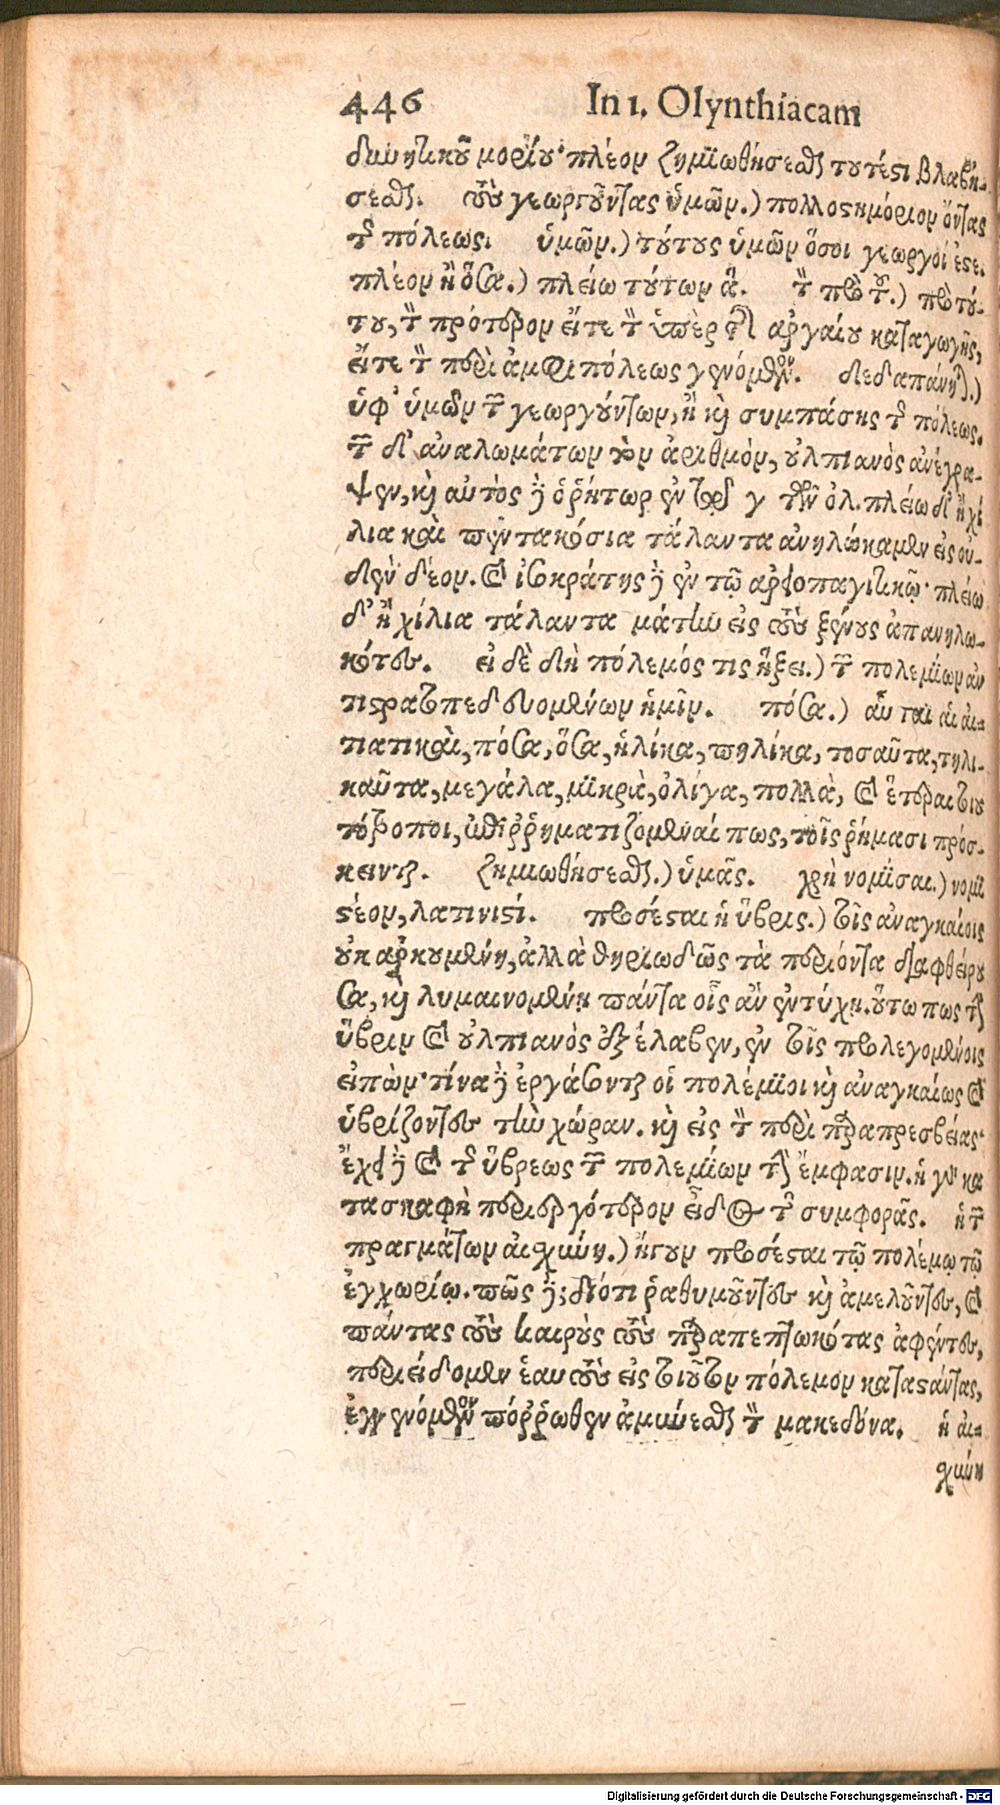 446 In 1. Olynthiacam
δυνητικοῦ μορίου· πλέον ζημιωθήσεσθαι τουτέστι βλαβή-
σεσθαι. τοὺς γεωργοῦντας ὑμῶν.) πολλοστημόριον ὄντας
τῆς πόλεως. ὑμῶν.) τούτους ὑμῶν ὅσοι γεωργοί ἐστε.
πλέον ἢ ὅσα.) πλείω τούτων ἃ. τὸν πρὸ τοῦ.) πρὸ τού-
του, τὸν πρότερον εἴτε τὸν ὑπὲρ τῆς ἀρχαίου καταγωγῆς,
εἴτε τὸν περὶ ἀμφιπόλεως γενόμενον. δεδαπάνησθε.)
ὑφ' ὑμῶν τῶν γεωργούντων, ἢ καὶ συμπάσης τῆς πόλεως.
τῶν δ' ἀναλωμάτων τὸν ἀριθμὸν, οὐλπιανὸς ἀνέγρα-
ψεν, καὶ αὐτὸς δὲ ὁ ῥήτωρ ἐν τῷ γ τῶν ὀλ. πλείω δ' ἢ χί
λια καὶ πεντακόσια τάλαντα ἀνηλώκαμεν εἰς οὐ-
δὲν δέον. καὶ ἰσοκράτης δὲ ἐν τῷ ἀρειοπαγιτικῷ· πλείω
δ' ἢ χίλια τάλαντα μάτην εἰς τοὺς ξένους ἀπανηλω-
κότες. εἰ δὲ δὴ πόλεμός τις ἥξει.) τῶν πολεμίων ἀν
τιστρατοπεδευομένων ἡμῖν. πόσα.) αὗται αἱ αἰ-
τιατικαὶ, πόσα, ὅσα, ἡλίκα, πηλίκα, τοσαῦτα, τηλι-
καῦτα, μεγάλα, μικρὰ, ὀλίγα, πολλὰ, καὶ ἕτεραι τοιου
τότροποι, ἐπιρρηματιζόμεναί πως, τοῖς ῥήμασι πρόσ-
κεινται. ζημιωθήσεσθαι.) ὑμᾶς. χρὴ νομίσαι.) νομι
στέον, λατινιστί. προσέσται ἡ ὕβρις.) τοῖς ἀναγκαίοις
οὐκ ἀρκουμένη, ἀλλὰ θηριωδῶς τὰ περιόντα διαφθείρου
σα, καὶ λυμαινομένη πάντα οἷς ἂν ἐντύχῃ. οὕτω πως τὴν
ὕβριν καὶ οὐλπιανὸς ἐξέλαβεν, ἐν τοῖς προλεγομένοις
εἰπών· τίνα δὲ ἐργάσονται οἱ πολέμιοι καὶ ἀναγκαίως καὶ
ὑβρίζοντες τὴν χώραν. καὶ εἰς τὸν περὶ παραπρεσβείας·
ἔχει δὲ καὶ τῆς ὕβρεως τῶν πολεμίων τὴν ἔμφασιν. ἡ γὰρ κα
τασκαφὴ περιεργότερον εἶδος τῆς συμφορᾶς. ἡ τῶν
πραγμάτων αἰσχύνη.) ἤγουν προσέσται τῷ πολέμῳ τῷ
ἐγχωρίῳ. πῶς δέ; διότι ῥαθυμοῦντες καὶ ἀμελοῦντες, καὶ
πάντας τοὺς καιροὺς τοὺς παραπεπτωκότας ἀφέντες,
περιείδομεν ἑαυτοὺς εἰς τοιοῦτον πόλεμον καταστάντας,
ἐγγενόμενον πόρρωθεν ἀμύνεσθαι τὸν μακεδόνα. ἡ αἰ-
σχύνη
Digitalisierung gefördert durch die Deutsche Forschungsgemeinschaft - DFG